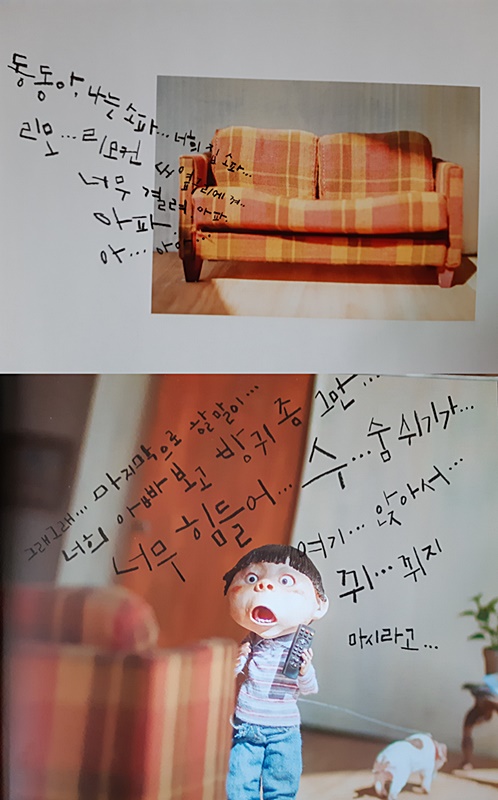 동동아, 나는 소파... 너희 집 소파...
리모... 리모컨 ... 옆구리에 껴..
너무 결려. 아파.
아파.
아... 아아...
그래그래... 마지막으로 할 말이...
너희 아빠 보고 방귀 좀 그만...
너무 힘들어... 수... 숨 쉬기가...
여기... 앉아서...
뀌... 뀌지
마시라고...